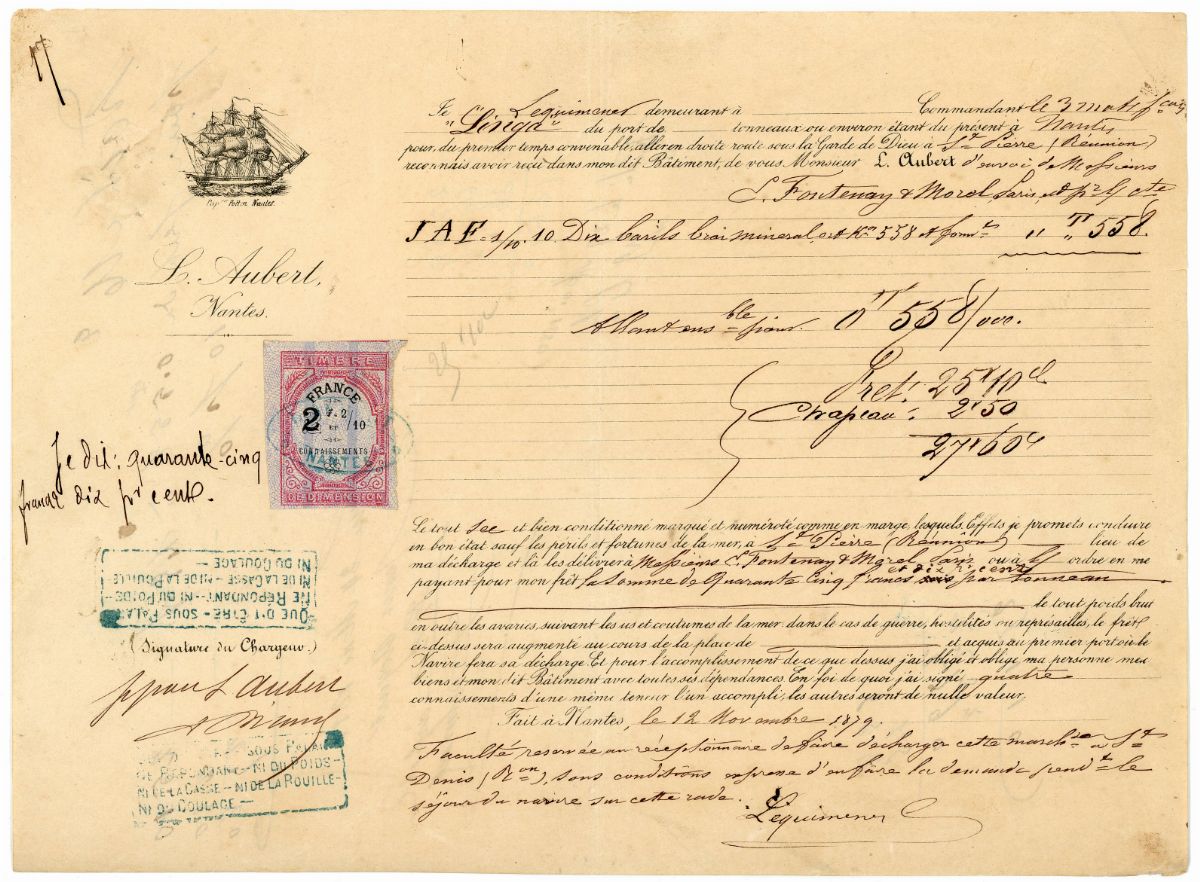 L. Aubert,
Nantes.
TIMBRE
FRANCE
2 F. 2/10
ET
CONNAISSEMENTS
NANTES
DE DIMENSION
Je dit: quarante-cinq
francs dix pr cent.
QUE DIT ÊTRE - SOUS PALAN
NE RÉPONDANT - NI DU POIDS -
NI DE LA CASSE - NI DE LA ROUILLE
NI DU COULAGE
(Signature du Chargeur.)
L Aubert
SOUS PALAN
NE RÉPONDANT - NI DU POIDS -
NI DE LA CASSE - NI DE LA ROUILLE -
NI DU COULAGE -
Je Lequimener demeurant à Commandant le 3 mats
"Linga" du port de tonneaux ou environ étant du présent à Nantes
pour, du premier temps convenable, aller en droite route sous la Garde de Dieu à St Pierre (Réunion)
reconnais avoir reçu dans mon dit Bâtiment, de vous Monsieur L. Aubert d'envoi de Messieurs
Fontenay & Morel, Paris, et pr cte
JAF = 1/10. 10 Dix barils brai mineral, 558 " T " 558.
Allant ensble pour 0T 558/000.
Fret: 25f10c
Chapeau: 2f50
27f60c
Le tout sec et bien conditionné marqué et numéroté comme en marge, lesquels Effets je promets conduire
en bon état sauf les périls et fortunes de la mer, à St Pierre (Réunion) lieu de
ma décharge et là les délivrer à Messieurs Fontenay & Morel Paris ou à ordre en me
payant pour mon frêt la somme de Quarante cinq francs et dix pr cent par tonneau
le tout poids brut
en outre les avaries, suivant les us et coutumes de la mer: dans le cas de guerre, hostilités ou représailles, le frêt
ci-dessus sera augmenté au cours de la place de et acquis au premier port où le
Navire fera sa décharge. Et pour l'accomplissement de ce que dessus j'ai obligé et oblige ma personne mes
biens et mon dit Bâtiment avec toutes ses dépendances. En foi de quoi j'ai signé quatre
connaissements d'une même teneur l'un accompli, les autres seront de nulle valeur.
Fait à Nantes, le 12 Novembre 1879.
Faculté reservée au réceptionnaire de faire décharger cette marchse à St
Denis (Ron), sous conditions expresse d'en faire la demande pendt le
séjour du navire sur cette rade.
Lequimener